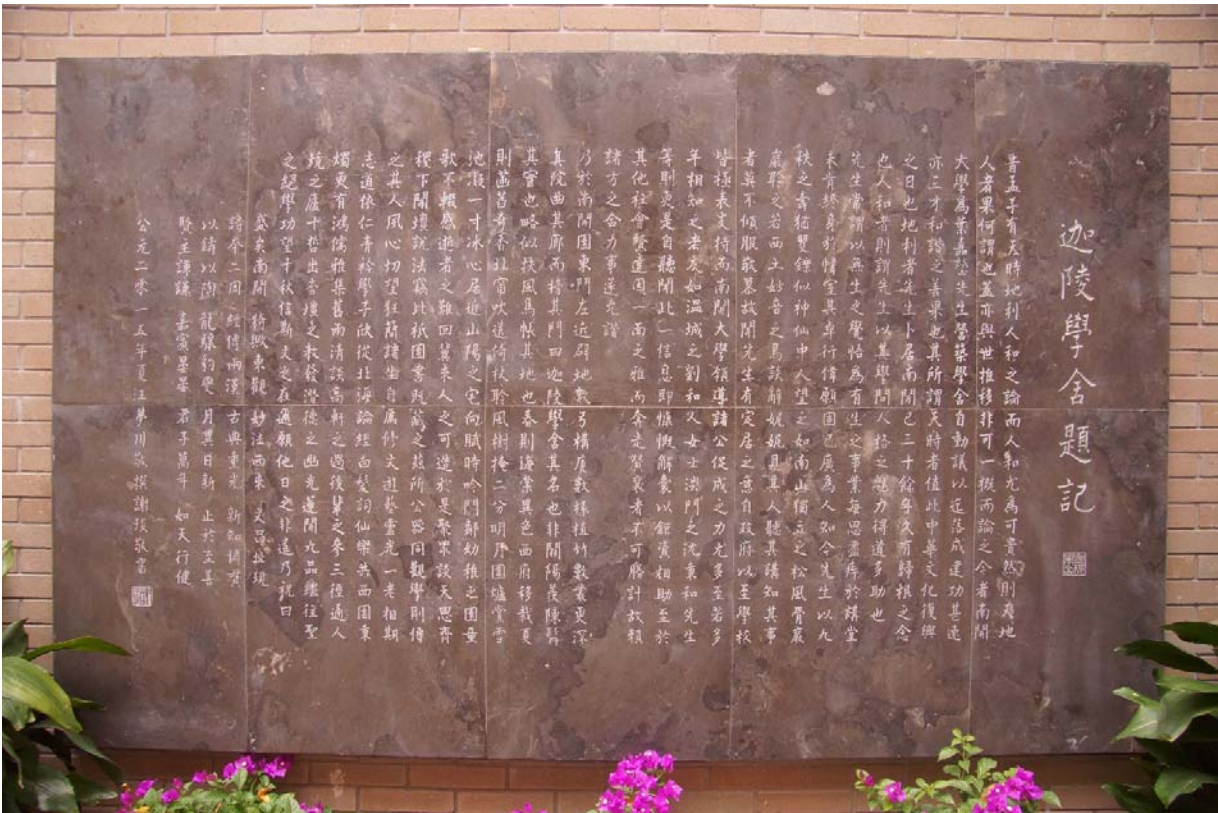 迦陵學舍題記
昔孟子有天時地利人和之論而人和尤為可貴然則天地
人者果何謂也蓋亦與世推移非可一概而論之今者南開
大學為葉嘉瑩先生營築學舍自動議以迄落成建功甚速
亦三才和諧之善果也其所謂天時者值此中華文化復興
之日也地利者先生卜居南開已三十餘年久有歸根之念
也人和者則謂先生以其學問人格之魅力得道多助也
先生嘗謂以無生之覺悟為有生之事業每思盡瘁於講堂
未肯終身於情室其卓行偉願固已廣為人知今先生以九
秩之壽猶矍鑠似神仙中人望之如南山獨立之松風骨峻
聆之若西土妙音之鳥談辭娓娓具耳人聽其講知其事
者莫不傾服敬慕故聞先生有定居之意自政府以至學校
皆極表支持而南開大學領導諸公促成之力尤多至若多
年相知之老友如溫城之劉和人女士澳門之沈秉和先生
等則更是自聽聞此一信息即慷慨解囊以鉅資相助至於
其他社會賢達因一面之雅而奔走贊襄者不可勝計故賴
諸方之合力事遂克諧
乃於南開園東門左近辟地數弓構廣數椽植竹數叢更深
其院曲其廊而榜其門曰迦陵學舍其名也非關陽羨陳髯
其實也略似扶風馬帳其地也春則海棠異色西府移栽夏
則菡萏有香北窗吹送倚扶聆風樹掩二分明月圍爐賞雪
池凝一寸冰心居近山陽之宅向賦時吟門鄰幼稚之園童
歌不輟感逝者之難回冀來人之可造於是聚眾談天思齊
稷下開壇說法竊比祇園書既藏之茲所公路同觀學則傳
之其人風心切望狂簡諸生自屬修文遊藝靈光一老相期
志道依仁青衿學子欣從北海論經白髮詞仙樂共西園秉
燭更有鴻儒雅集舊雨清談高軒之過後輩之參三徑通人
境之廬十哲出杏壇之教發潛德之幽光遂開九品繼往聖
之絕學功望千秋信斯文之在通願他日之非遙乃祝曰
盛矣南開 猗與東觀 妙法西來 文昌並現
詩奉二因 經傳兩漢 古典重光 新知補贊
以鑄以陶 龍驤豹變 月異日新 止於至善
賢主謙謙 嘉賓晏晏 君子萬年 如天行健
公元二零一五年夏汪夢川敬撰謝琰敬書